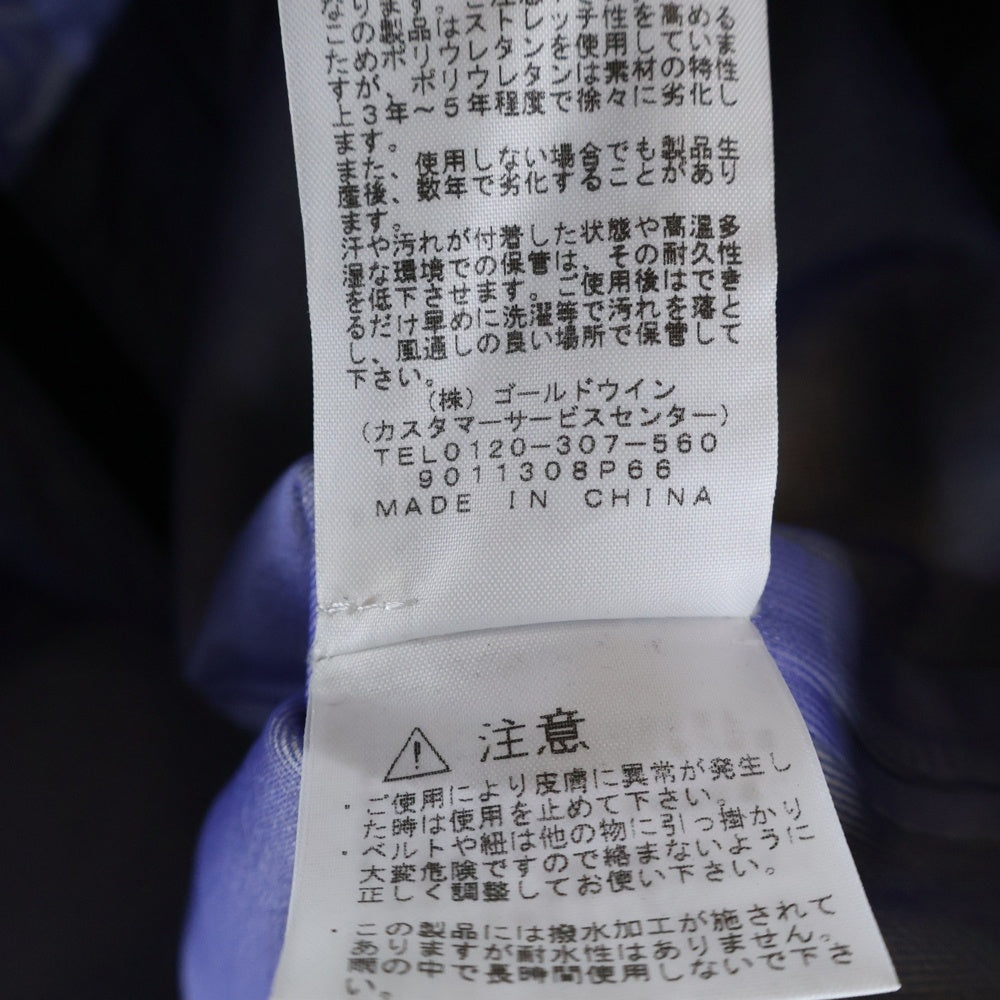 ポリウレタンは素材の特性
上、3年～5年程度で徐々に劣化し
ます。
また、使用しない場合でも製品生
産後、数年で劣化することがあり
ます。
汗や汚れが付着した状態や高温多
湿な環境での保管は、その耐久性
を低下させます。ご使用後はでき
るだけ早めに洗濯等で汚れを落と
し、風通しの良い場所で保管して
下さい。
(株)ゴールドウイン
(カスタマーサービスセンター)
TEL0120-307-560
9011308P66
MADE IN CHINA
注意
・ご使用により皮膚に異常が発生し
た時は使用を止めて下さい。
・ベルトや紐は他の物に引っ掛かり
大変危険ですので絡まないように
正しく調整してお使い下さい。
・この製品には撥水加工が施されて
ありますが耐水性はありません。
雨の中で長時間使用しないで下さ
い。